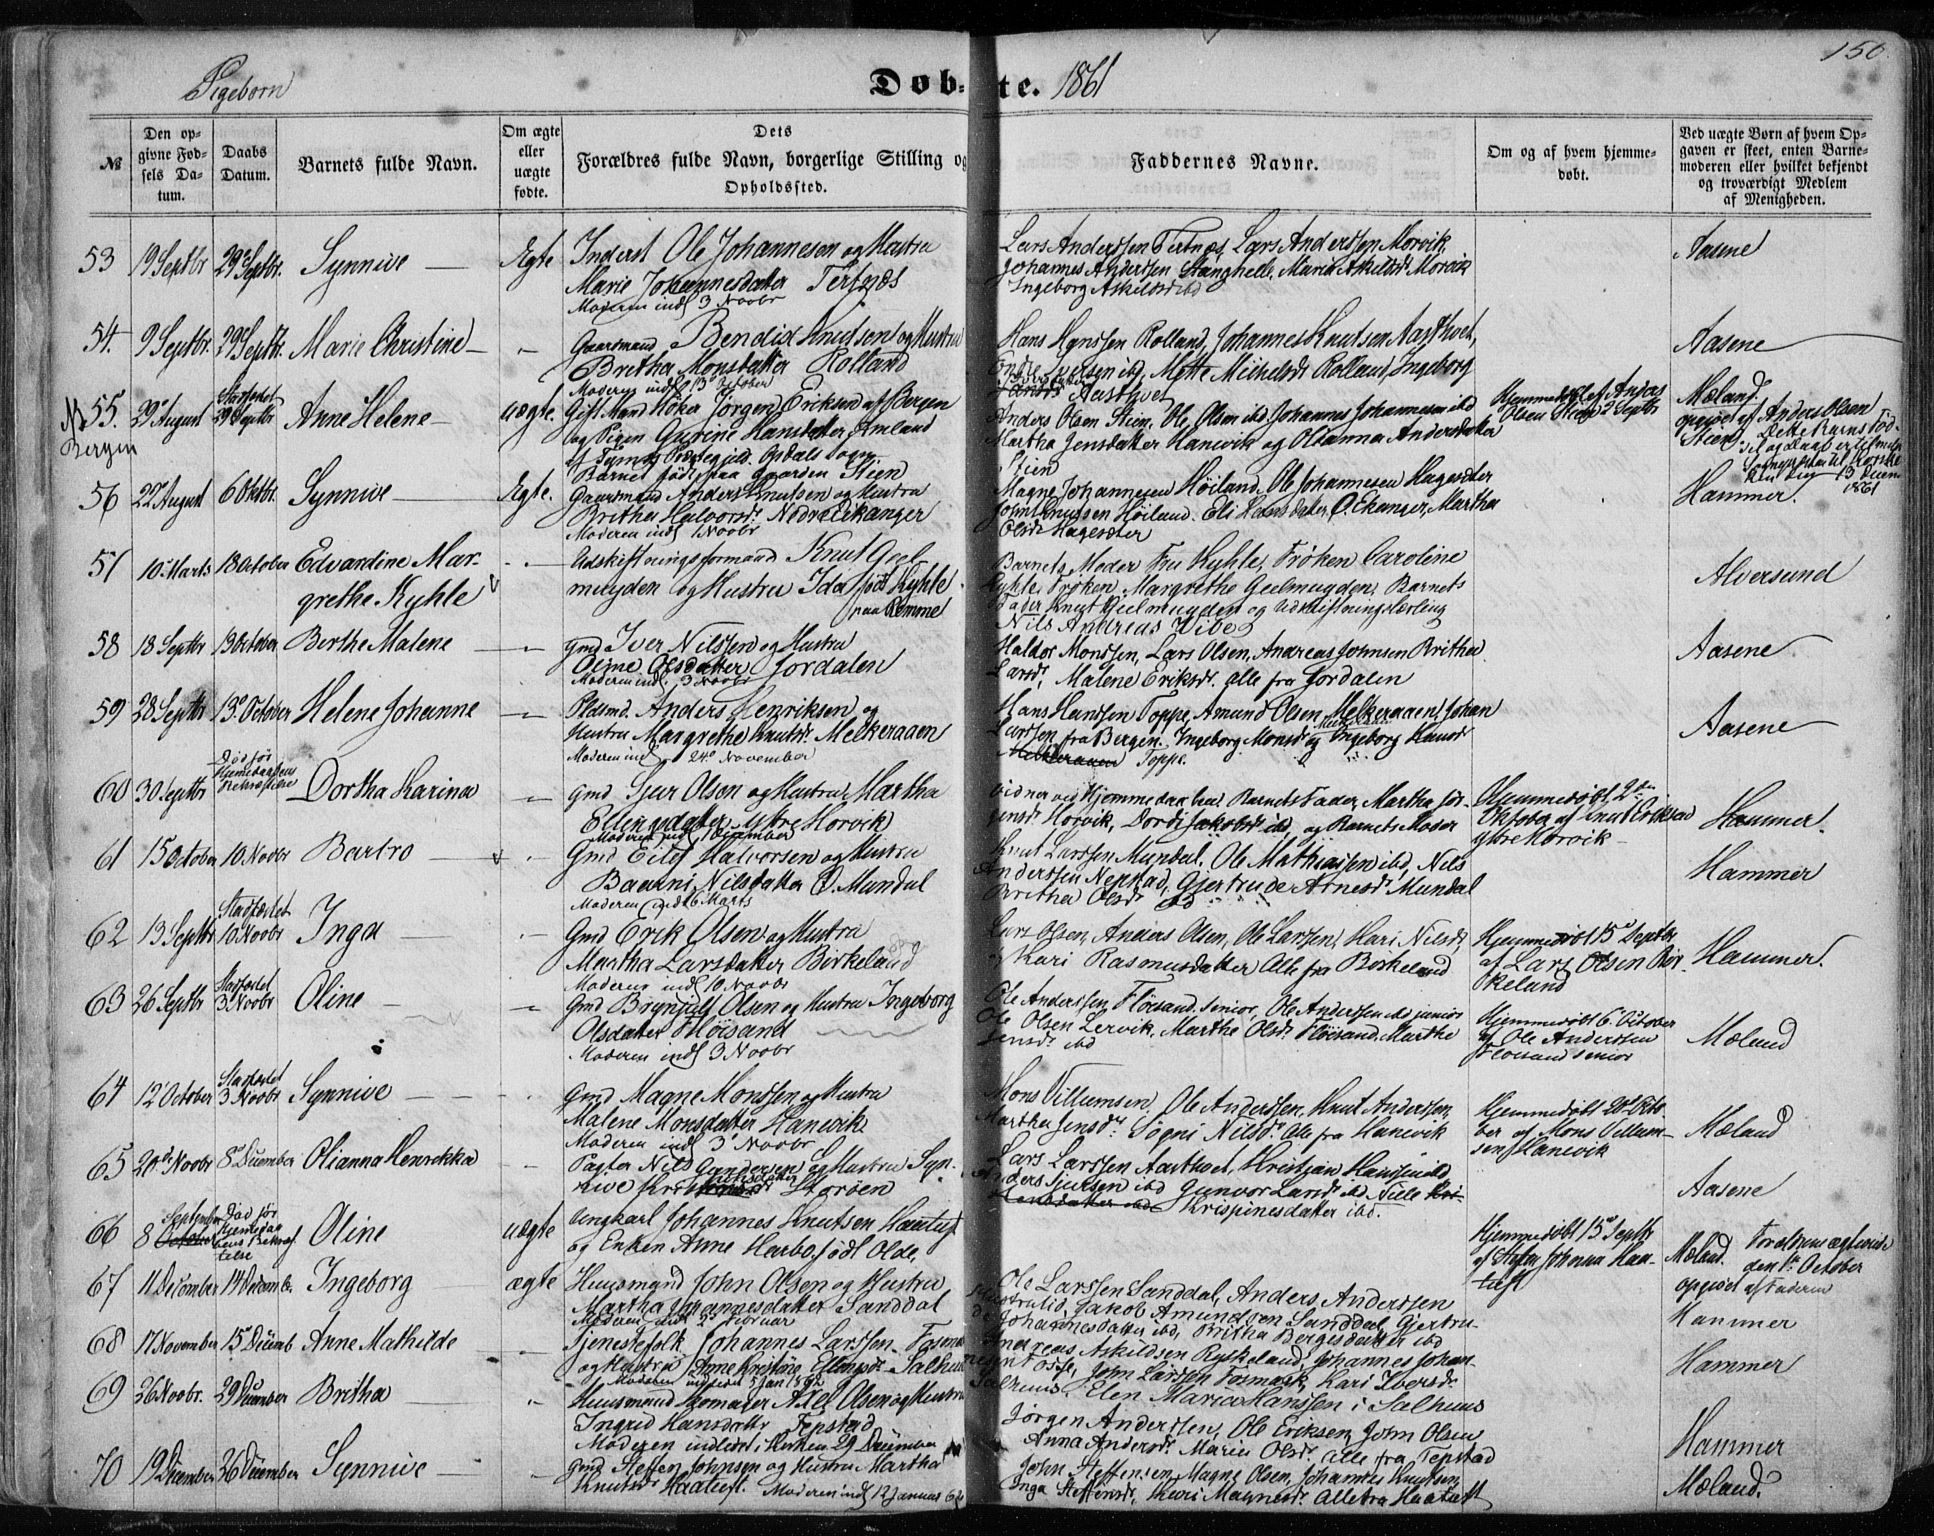 150.
Pigeborn
Døb- te. 1861
№
Den opgivne Fødsels Datum.
Daabs Datum.
Barnets fulde Navn.
Om ægte eller uægte fødte.
Dets Forældres fulde Navn, borgerlige Stilling og Opholdssted.
Faddernes Navne.
Om og af hvem hjemmedøbt.
Ved uægte Børn af hvem Opgaven er skeet, enten Barnemoderen eller hvilket bekjendt og troværdigt Medlem af Menigheden.
53 19 Septbr 29 Septbr. Synnive — Ægte Inderst Ole Johannesen og Hustru
Marie Johannesdatter Tertnæs
Moderen indl 3 Novbr
Lars Anderssen Tertnæs, Lars Anderssen Morvik,
Johannes Anderssen Stanghelle, Marie Askilsd Morvik
Ingeborg Askilsd ibd
Aasene
54. 9 Septbr. 29 Septbr. Marie Christine — Gaardmand Bendix Knutsen og Hustru
Britha Monsdatter Rolland
Moderen indl 13 October
Hans Hanssen Rolland, Johannes Knutsen Aasthvet,
ibd, Mette Michelsd Rolland, Ingeborg
Aasthvet
Aasene
55. 29 August 29 Septbr Anne Helene — uægte. Gift Mand Høker Jørgen Eriksen af Bergen
og Pigen Gurine Hansdatter Amland
Barnet født paa Gaarden Stien
Bergen
Anders Olsen Stien, Ole Olsen ibd Johannes Johannesen ibd
Martha Jensdatter Hanevik og Olianna Andersdatter
Stien
Hjemmedøbt af Anders
Olsen Stien 2 Septbr
Mæland.
opgivet af Anders Olsen
Stien.
1861
56 22 August 6 Oktbr. Synnive — Ægte. Gaardmand Anders Knutsen og Hustru
Britha Halvorsd. Nedre Eikanger
Moderen indl 1 Novbr
Magne Johannesen Høiland, Ole Johannesen Hageseter
John Knutssen Høiland. Eli Hansdatter, Ø Ekanger, Martha
Olsd. Hageseter
Hammer.
57 10 Marts 18 October Edvardine Mar-
grethe Kyhle
Udskiftningsformand Knut Geel-
muyden og Hustru Ida født Kyhle
paa Remme
Barnets Moder Fru Kyhle, Frøken Caroline
Kyhle, Frøken Margrethe Geelmuyden, Barnets
Fader Knut Geelmuyden og Udskiftningslærling
Nils Andreas Vibe
Alversund
58 18 Septbr 13 October Berthe Malene — Gmd Iver Nilssen og Hustru
Oline Olsdatter Jordalen
Moderen indl. 3 Novbr
Haldor Monssen, Lars Olsen, Andreas Johnsen Britha
Larsd, Malene Eriksd. alle fra Jordalen
Aasene
59 28 Septbr 13 October Helene Johanne — Pladsmd. Anders Henriksen og
Hustru Margrethe Knutsd. Melkeraaen
Moderen ind 24 November
Hans Hanssen Toppe, Amund Olsen Melkeraaen, Johan
Larssen fra Bergen. Ingeborg Monsd og Ingeborg Hansd
Toppe.
Aasene
60 30 Septbr Død før
Hjemmedaabens
Bekræftelse Dortha Karina — Gmd Sjur Olsen og Hustru Martha
Ellingsdatter ytre Horvik
Vidner ved Hjemmedaaben Barnets Fader, Martha Jør-
gensd. Horvik, Dordi Jakobsd ibd, og Barnets Moder
Hjemmedøbt 2den
Oktober af Knut Eriksen
ytre Horvik
Hammer.
61 15 October 10 Novbr Barbro — Gmd Eilef Halvorsen og Hustru
Nilsdatter Ø. Mundal
Moderen indl 6 Marts
Knut Larssen Mundal, Ole Mathiassen ibd, Nils
Anderssen Nepstad, Gjertrude Arnesd. Mundal
Britha Olsd. ibd
Hammer
62 13 Septbr Stadfæstet
10 Novbr Inga — Gmd Erik Olsen og Hustru
Martha Larsdatter Birkeland
Moderen indl 10 Novbr
Lars Olsen, Anders Olsen, Ole Larssen, Kari Nilsd,
og Kari Rasmusdatter Alle fra Birkeland
Hjemmedøbt 15 Septbr
af Lars Olsen Bir-
keland
Hammer.
63 26 Septbr Stadfæstet
3 Novbr Oline — Gmd Brynjulf Olsen og Hustru Ingeborg
Olsdatter Fløisand
Moderen indl 3 Novbr
Ole Anderssen Fløisand senior, Ole Anderssen ibd junior
Ole Olsen Lervik, Marthe Olsd. Fløisand, Marthe
Jensd. ibd
Hjemmedøbt 6. October
af Ole Anderssen
Fløisand senior
Mæland
64 12 October Stadfæstet
3 Novbr Synnive — Gmd Magne Monssen og Hustru
Malene Monsdatter Hanevik
Moderen indl 3 Novbr
Mons Villumsen, Ole Anderssen, Knut Anderssen,
Martha Jensd. Søgni Nilsd. Alle fra Hanevik
Hjemmedøbt 20 Octo-
ber af Mons Villum-
sen Hanevik
Mæland
65 20 Novbr 8 December Olianna Henrikka — Pagter Nils Gundersen og Hustru Syn-
nive Storøen
Lars Larssen Aasthvet, Kristian Hanssen ibd
Anders Sjursen ibd Gunvor Larsd. ibd Nille
Krispinesdatter ibd.
Aasene
66 8 September Død før
Hjemmedaa-
bens Bekræf-
telse Oline uægte Ungkarl Johannes Knutsen Haatuft
og Enken Anne Harbo, født Olde,
Hjemmedøbt 15 Septbr
af Johanna Haa-
tuft
Mæland. Forældrene ægteviede
den 1 October
opgivet af Faderen
67 11 December 14 Decemb. Ingeborg ægte Huusmand John Olsen og Hustru
Martha Johannesdatter Sanddal
Moderen indl 2 Februar
Ole Larssen Sanddal, Anders Anderssen
ibd, Jakob Amundsen Sanddal, Gjertru-
de Johannesdatter ibd, Britha Bergesdatter ibd
Hammer
68 17 November 15 Decemb Anne Mathilde — Tjenestefolk Johannes Larssen Fosmark
og Hustru Anne Kristine Ellingsd. Salhuus
Moderen indledet 5 Jan 1862
Andreas Askildsen Ryskeland, Johannes Johan-
nesen Fosse, John Larssen Fosmark, Kari Iversd
Salhuus, Elen Marie Hanssen i Salhuus
Hammer
69 26 Novbr. 29 December Britha — Huusmand Skomager Axel Olsen og Hustru
Ingrid Hansdatter Tepstad
Moderen indledet i Kirken 29 December
Jørgen Anderssen, Ole Eriksen, John Olsen
Anna Andersd. Marie Olsd. alle fra Tepstad
Hammer
70 19 December 26 December Synnive — Gmd Steffen Johnsen og Hustru Martha
Knutsd. Haatuft. Moderen indl 12 Januar 62
John Steffensen, Magne Olsen, Johannes Knutsen,
Inga Steffensd, Kari Magnesd. Alle fra Haatuft
Mæland.